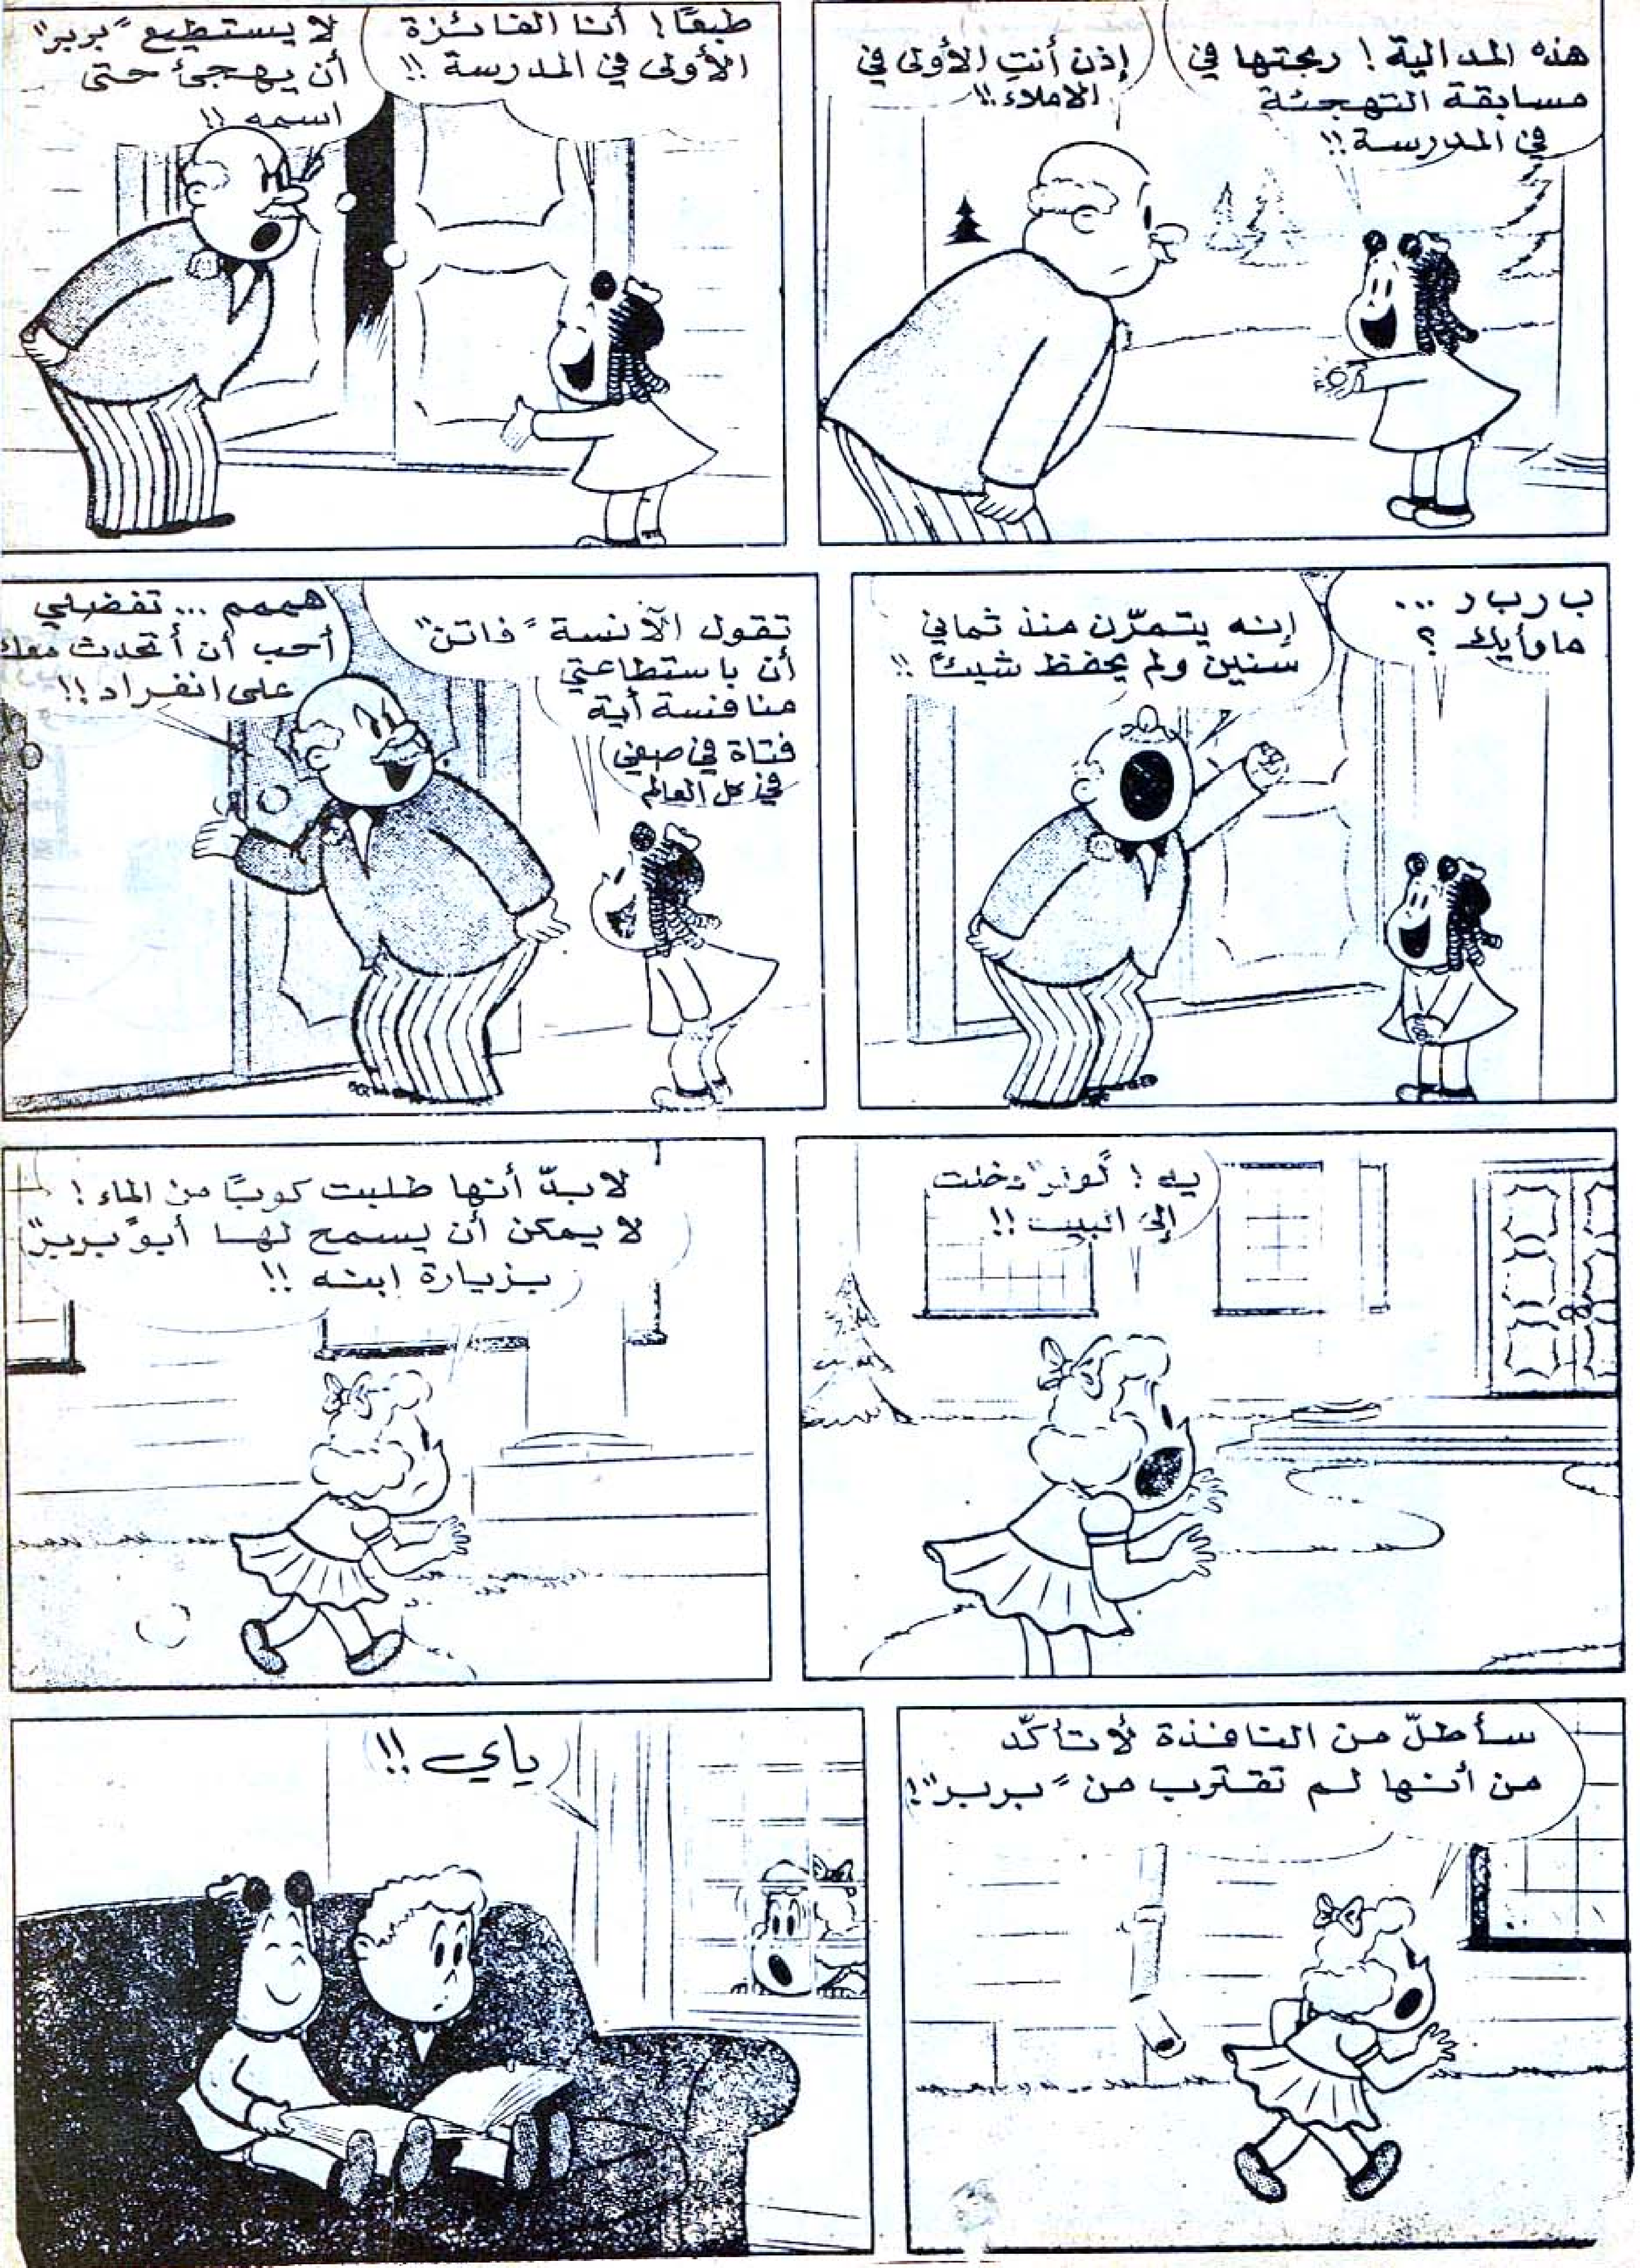 هذه المدالية! ربحتها في
مسابقة التهجئة
في المدرسة!!
إذن أنتِ الأولى في
الاملاء!!
طبعًا! أنا الفائزة
الأولى في المدرسة!!
لا يستطيع "بربر"
أن يهجئ حتى
اسمه!!
ب ر ب ر ...
ما رأيك؟
إنه يتمرّن منذ ثماني
سنين ولم يحفظ شيئًا!!
تقول الآنسة "فاتن"
أن باستطاعتي
منافسة أية
فتاة في صفي
في كل العالم
هممم ... تفضلي
أحب أن أتحدث معك
على انفراد!!
يه! "لولو" دخلت
إلى البيت!!
لابدّ أنها طلبت كوبًا من الماء!
لا يمكن أن يسمح لها أبو "بربر"
بزيارة ابنه!!
سأطلّ من النافذة لأتأكّد
من أنها لم تقترب من "بربر"!
ياي!!